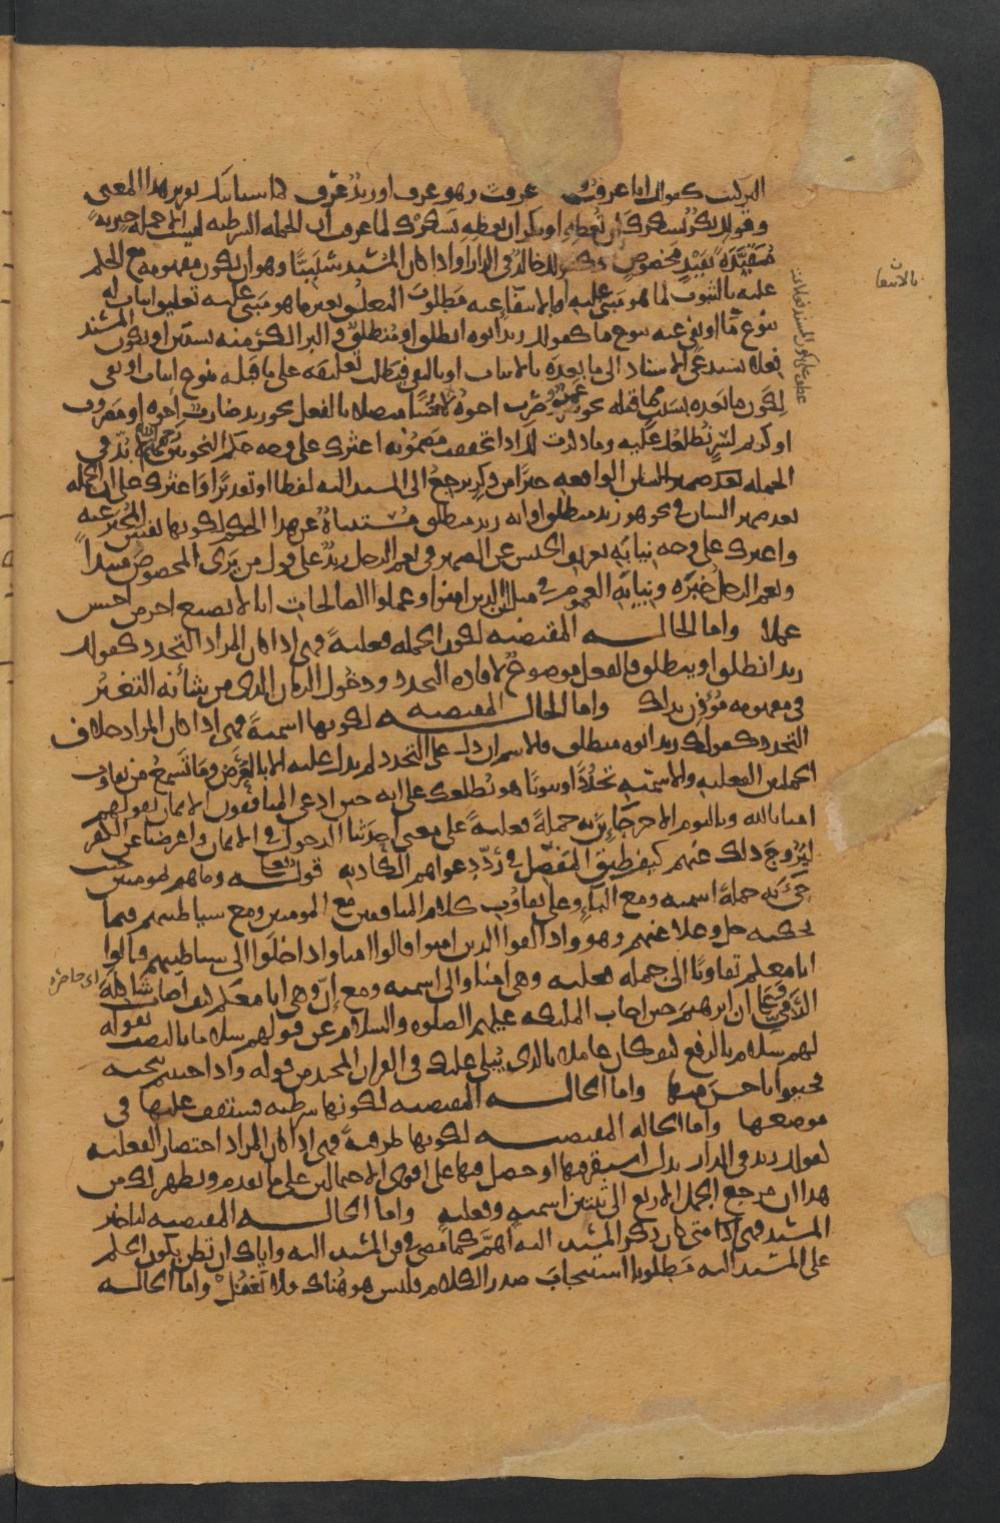 التركيب كقولك انا عرفت وانت عرفت وهو عرف او زيد عرف كما سيأتيك تقرير هذا المعنى
وقولك بكر يشكرك ان تعطه او بكر ان تعطه يشكرك لما عرفت ان الجملة الشرطية ليست الا جملة خبرية
مقيدة بقيد مخصوص وكقولك خالد في الدار او اذا كان المسند سببيا وهو ان يكون مفهومه مع الحكم
عليه بالثبوت لما هو مبني عليه او بالانتفاء عنه مطلوب التعليق بغير ما هو مبني عليه تعليق اثبات له
بنوع ما او نفي عنه بنوع ما كقولك زيد ابوه انطلق او منطلق و البر الكر منه بستين او يكون المسند
فعلا يستدعي الاسناد الى ما بعده بالاثبات او بالنفي فيطلب تعليقه على ما قبله بنوع اثبات او نفي
لكون ما بعده بسبب مما قبله نحو عمرو ضرب اخوه لا شيئا متصلا بالفعل نحو زيد ضارب اخوه او مضروب
او كريم لسر نطلعك عليه وما ذكرت لك اذا تحققت مضمونه اعثرك على وجه حكم النحويين بد في
الجملة بعد ضمير الشان الواقعة خبرا من ذكر يرجع الى المسند اليه لفظا او تقديرا واعثرك على ان الجملة
بعد ضمير الشان في نحو هو زيد منطلق او انه زيد منطلق مستثناة عن هذا الحكم لكونها نفس المخبر عنه
واعثرك على وجه نيابة تعريف الجنس عن الضمير في نعم الرجل زيد على قول من يرى المخصوص مبتدأ
ونعم الرجل خبره ونيابة العموم في مثل ان الذين امنوا وعملوا الصالحات انا لا نضيع اجر من احسن
عملا واما الحالة المقتضية لكون الجملة فعلية فهي اذا كان المراد التجدد كقولك
زيد انطلق او ينطلق فالفعل موضوع لافادة التجدد ودخول الزمان الذي من شأنه التغير
في مفهومه مؤذن بذلك واما الحالة المقتضية لكونها اسمية فهي اذا كان المراد خلاف
التجدد كقولك زيد ابوه منطلق فالاسم ان دل على التجدد لم يدل عليه الا بالعرض وما تسمع من تفاوت
الجملتين الفعلية والاسمية تجددا وثبوتا هو يطلعك على انه حين ادعى المنافقون الايمان بقولهم
امنا بالله وباليوم الاخر جائين به جملة فعلية على معنى احدثنا الدخول في الايمان واعرضنا عن الكفر
ليروج ذلك عنهم كيف طبق المفصل في رد دعواهم الكاذبة قوله تعالى وما هم بمؤمنين حيث
جيء به جملة اسمية ومع الباء وعلى تفاوت كلام المنافقين مع المومنين ومع شياطينهم فيما
يحكيه جل وعلا عنهم وهو واذا لقوا الذين امنوا قالوا امنا واذا خلوا الى شياطينهم قالوا
انا معكم تفاوتا الى جملة فعلية وهي امنا والى اسمية ومع ان وهي انا معكم كيف اصاب شاكلة
الرمي وعما ان ابرهيم حين اجاب الملئكة عليهم الصلوة والسلام عن قولهم سلاما بالنصب بقوله
لهم سلام بالرفع كيف كان عاملا بالذي يتلى عليك في القران المجيد من قوله واذا حييتم بتحية
فحيوا باحسن منها واما الحالة المقتضية لكونها شرطية فستقف عليها في
موضعها واما الحالة المقتضية لكونها ظرفية فهي اذا كان المراد اختصار الفعلية
كقولك زيد في الدار بدل استقر فيها او حصل فيها على اقوى الاحتمالين على ما تقدم ويظهر لك من
هذا ان مرجع الجمل الاربع الى ثنتين اسمية وفعلية واما الحالة المقتضية لتاخر
المسند فهي اذا متى كان ذكر المسند اليه اهم كما مضى في فن المسند اليه واياك ان تظن بكون الحكم
على المسند اليه مطلوبا استيجاب صدر الكلام له فليس هو هناك فلا تغفل واما الحالة
بالانتفا
عطف على كون المسند فعليا
اي خاصرة